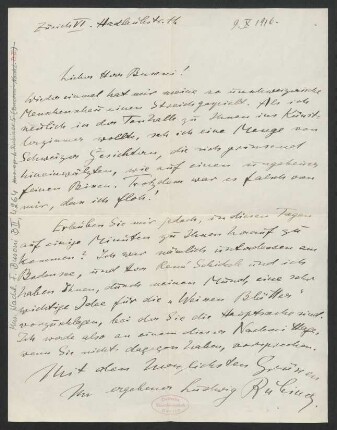 Zürich VI. Hadlaubstr. 11
9. X 1916.
Lieber Herr Busoni!
Wieder einmal hat mir meine so unüberwindliche
Menschenscheu einen Streich gespielt. Als ich
neulich in der Tonhalle zu Ihnen ins Künst-
lerzimmer wollte, sah ich eine Menge von
Schweizer Gesichtern, die sich
hineinwälzten, wie auf einem ungeheuer
feinen Trotzdem war es falsch von
mir, dass ich floh!
Erlauben Sie mir jedoch, in diesen Tagen
auf einige Minuten zu Ihnen herauf zu
kommen? Ich war nämlich unterdessen am
Bodensee, und Herr René Schickele und ich
haben Ihnen, durch meinen Mund, eine sehr
wichtige Idee für die "Weissen Blätter"
vorzuschlagen, bei der Sie die Hauptsache sind.
Ich werde also an einem dieser Nachmittage,
wenn Sie nichts dagegen haben, vorsprechen.
Mit den herzlichsten Grüssen
Ihr ergebener Ludwig Rubiner